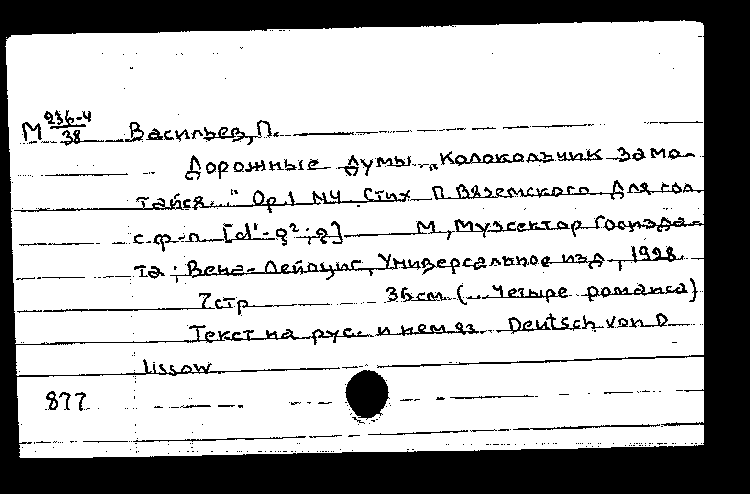 М 236-4/38 Васильев, П.
Дорожные думы. "Колокольчик замо-
тайся..." Op.1 №4 Стих П. Вяземского. Для гол.
с ф-п. [d¹-g²; g] М., Музсектор Госизда-
та; Вена-Лейпциг, Универсальное изд., 1928.
7 стр 36 см (... Четыре романса)
Текст на рус. и нем яз Deutsch von D
Ussow.
877